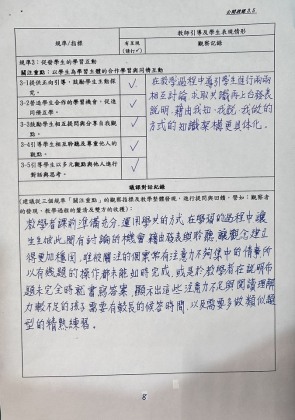 公開授課 2.5
規準/指標
有呈現(請打✓)
教師引導及學生表現情形
觀察紀錄
規準3:促發學生的學習互動
關注重點:以學生為學習主體的合作學習與同儕互動
3-1提供正向引導,鼓勵學生主動探究。
✓
3-2營造學生合作的學習機會,促進同儕互學。
✓
3-3鼓勵學生相互提問與分享自我觀點。
✓
3-4引導學生相互聆聽及尊重他人的觀點。
✓
3-5引導學生以多元觀點與他人進行對話與思考。
✓
在教學過程中導引學生進行兩兩
相互討論,求取共識再上台發表
說明,藉由我知、我說、我做的
方式的知識架構更具体化。
議課對話紀錄
(建議從三個規準「關注重點」的觀察指標及教學整體發現,進行提問與回饋,譬如:觀察者
的發現、教學過程的釐清及雙方的收穫):
教學者課前準備充分,運用學共的方式,在學習的過程中讓
生生彼此間有討論的機會,藉由發表與聆聽,讓觀念建立
得更加穩固。唯被關注的個案常有注意力不夠集中的情事,所
以有幾題的操作都未能如時完成,或是於教學者在說明布
題未完全時就書寫答案,顯示出這些注意力不足與閱讀理解
力較不足的孩子需要有較長的候答時間,以及需要多做類似題
型的精熟練習。
8